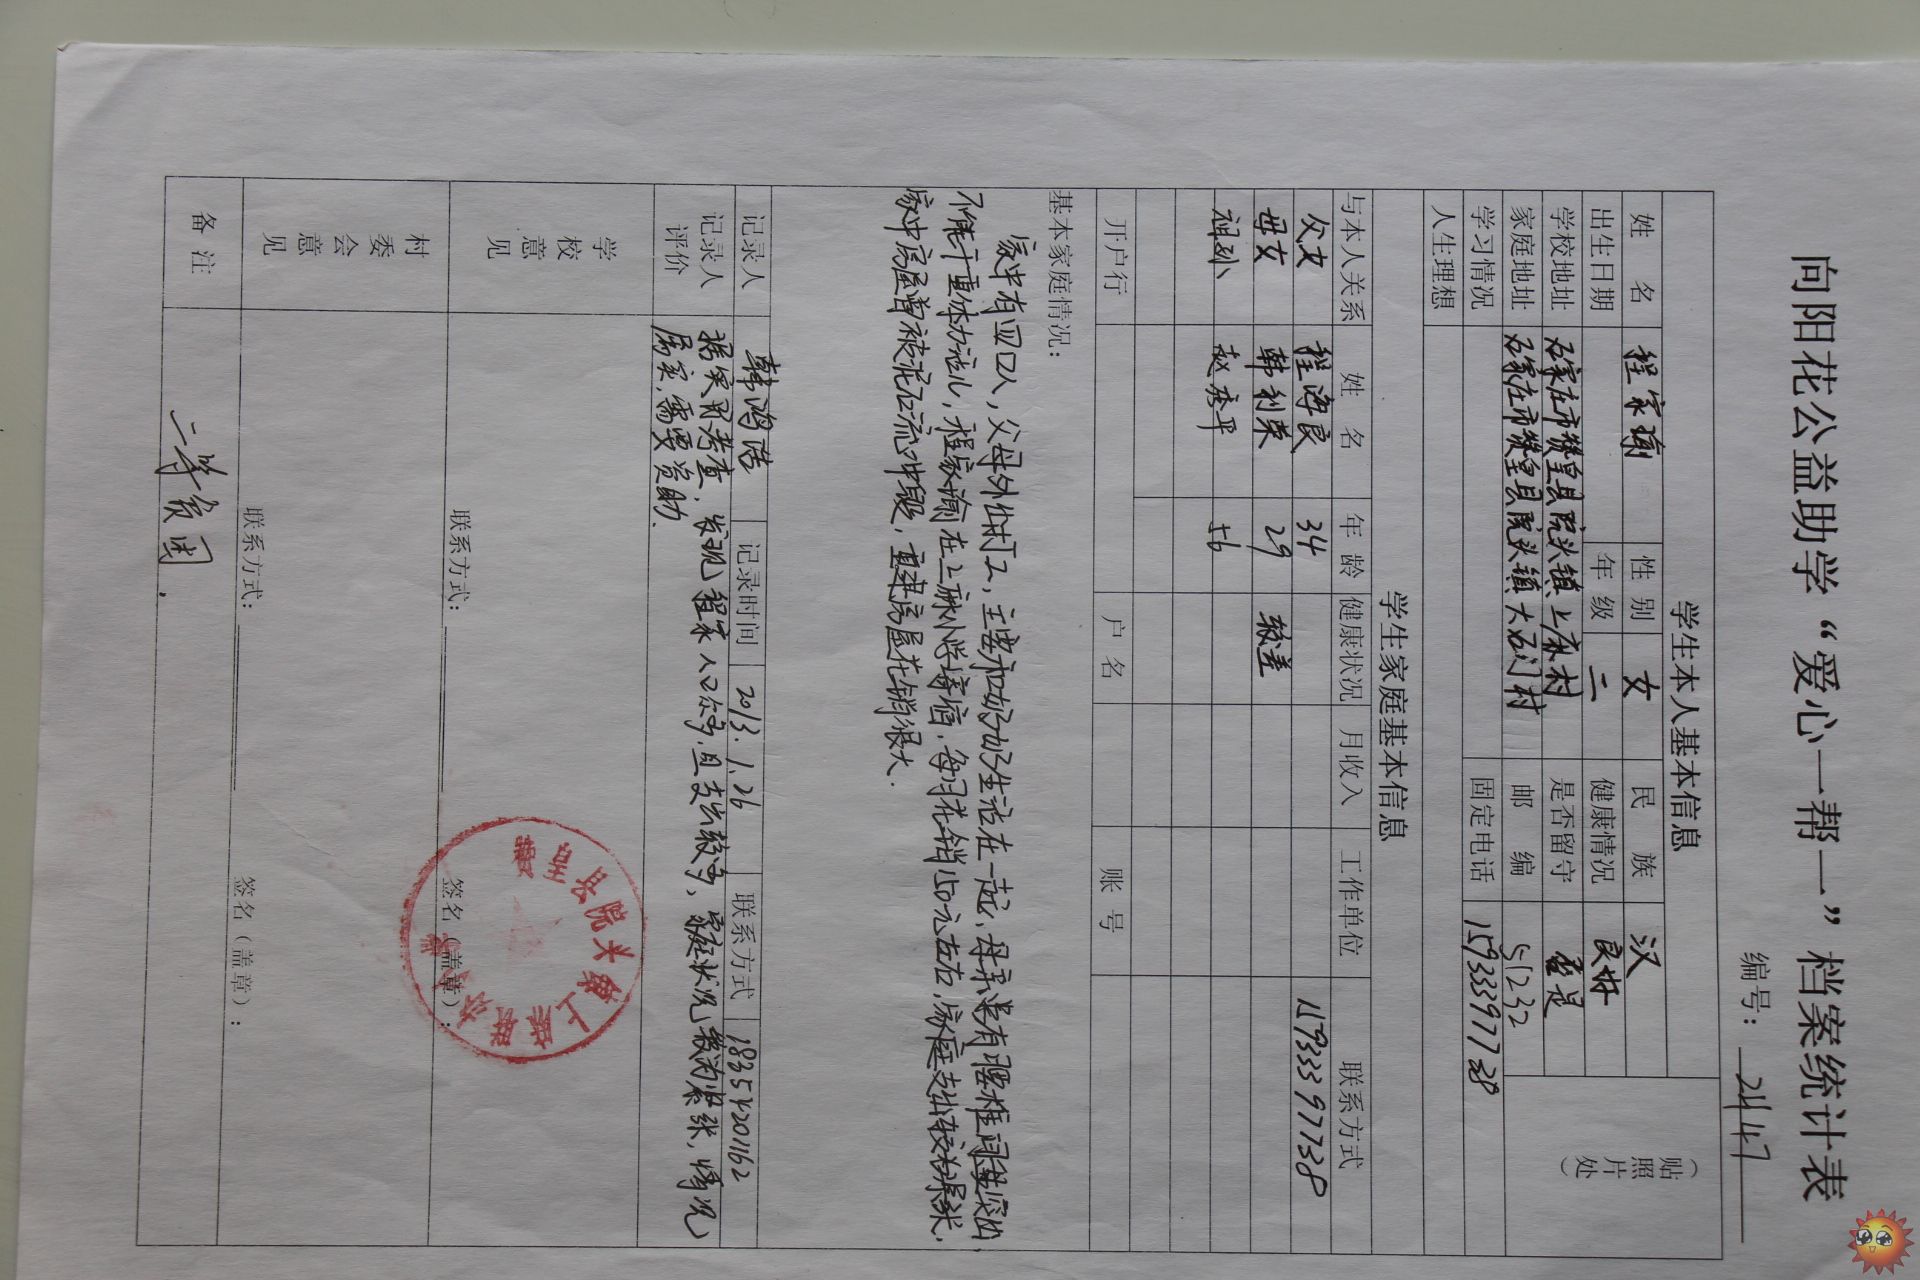 向阳花公益助学“爱心一帮一”档案统计表
编号：2447
学生本人基本信息
姓名 程家瑜 性别 女 民族 汉
出生日期 年级 二 健康情况 良好
学校地址 石家庄市赞皇县院头镇上麻村 是否留守 是
家庭地址 石家庄市赞皇县院头镇大石门村 邮编 051232
（贴照片处）
学习情况 固定电话 15933397738
人生理想
学生家庭基本信息
与本人关系 姓名 年龄 健康状况 月收入 工作单位 联系方式
父女 程海良 34 15933397738
母女 韩利荣 29 较差
祖孙 赵彦平 56
开户行 户名 账号
基本家庭情况：
家中有四口人，父母外出打工，主要和奶奶生活在一起，母亲患有腰椎间盘突出，
不能干重体力活儿，程家瑜在上麻小学寄宿，每月花销150元左右，家庭支出较为紧张，
家中房屋曾被泥石流冲毁，重建房屋花销很大．
记录人 韩鸿浩 记录时间 2013.1.26 联系方式 18354201162
记录人评价
据实际考查，发现程家人口众多，且支出较多，家庭状况较为紧张，情况
属实，需要资助．
学校意见
联系方式： 签名（盖章）：
赞皇县院头镇上麻
村委会意见
联系方式： 签名（盖章）：
备注 二等贫困．